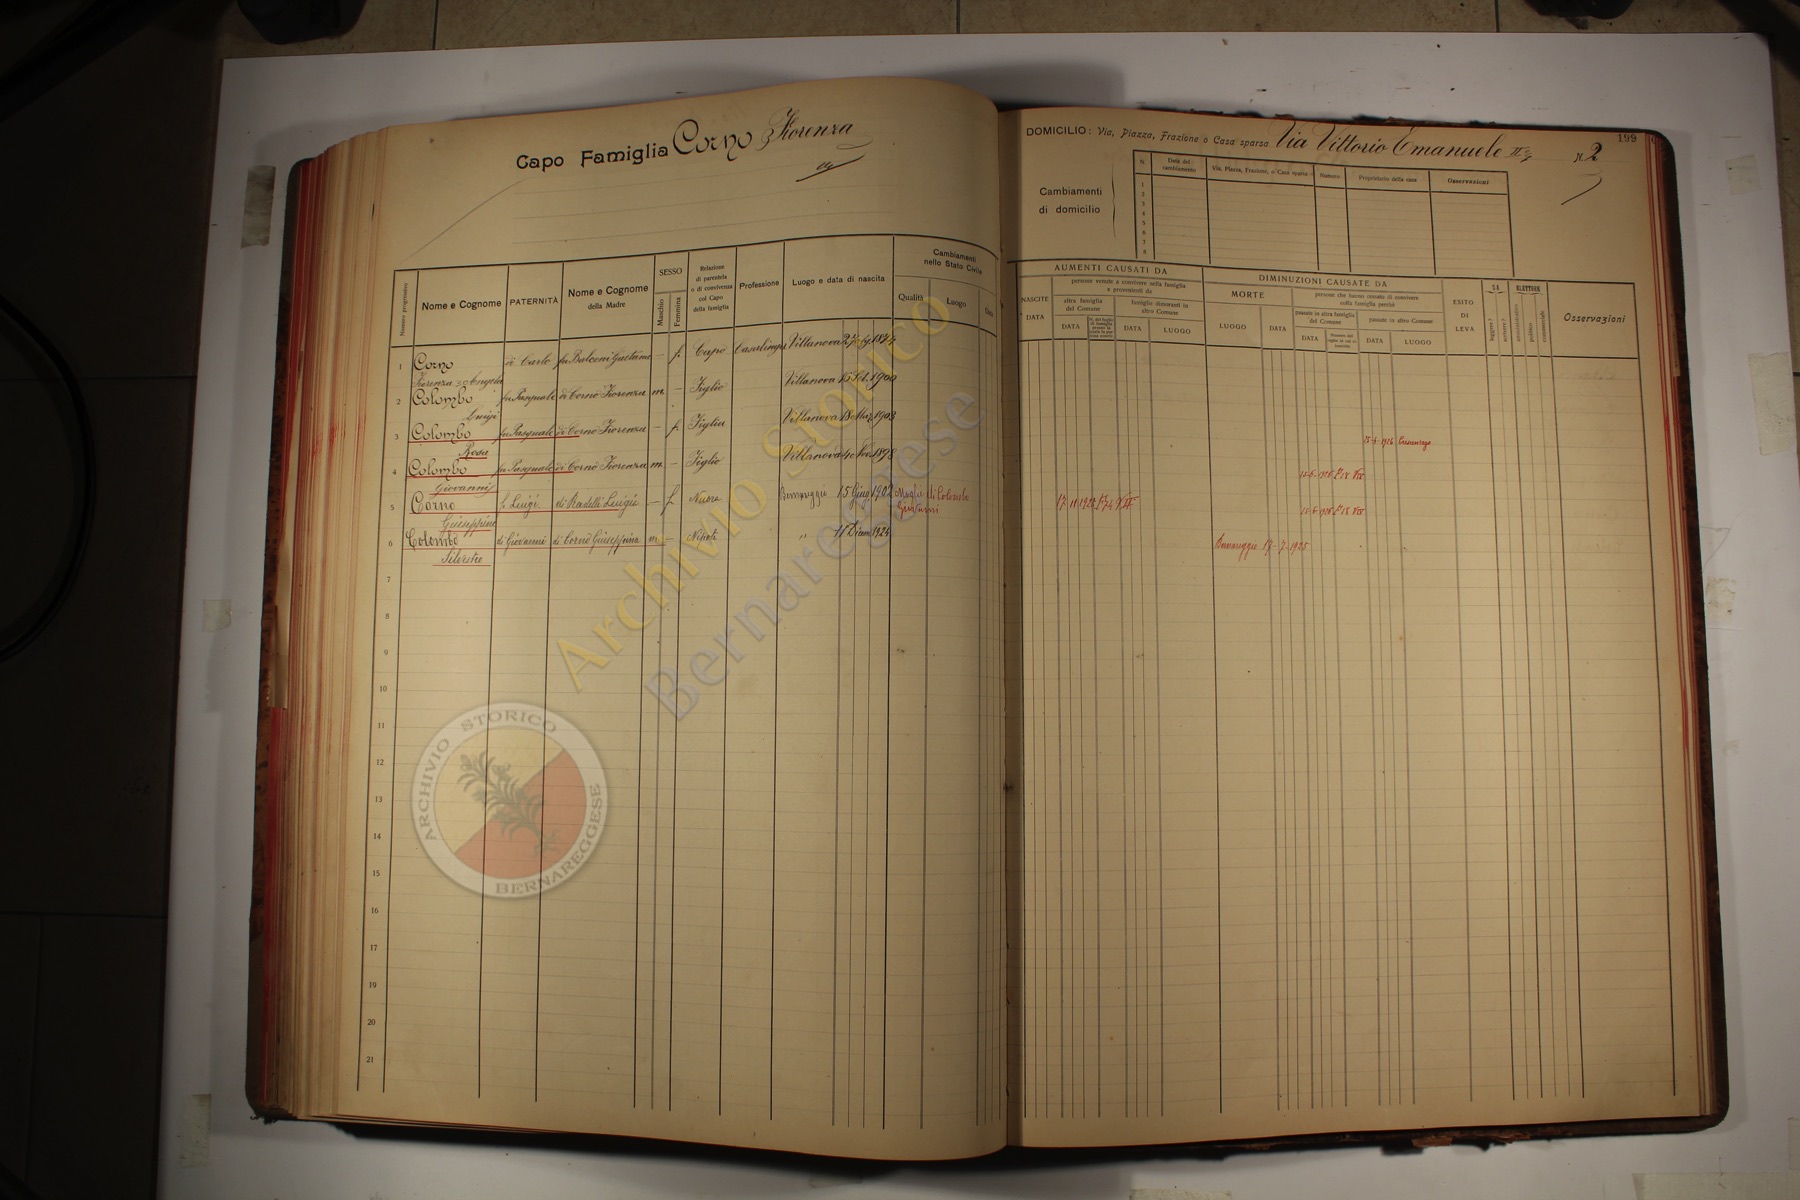 Capo Famiglia Corno Fiorenza
Numero progressivo
Nome e Cognome
PATERNITÀ
Nome e Cognome della Madre
SESSO
Maschio
Femmina
Relazione di parentela o di convivenza col Capo della famiglia
Professione
Luogo e data di nascita
Cambiamenti nello Stato Civile
Qualità
Luogo
1 Corno di Carlo fu Balconi Gaetana — f. Capo Casalinga Villanova
Fiorenza Angela
2 Colombo fu Pasquale di Corno Fiorenza m. — Figlio Villanova 15 Set. 1900
Luigi
3 Colombo fu Pasquale di Corno Fiorenza — f. Figlia Villanova 18 Mag. 1903
Rosa
4 Colombo fu Pasquale di Corno Fiorenza m. — Figlio Villanova 1898
Giovanni
5 Corno Luigi di Radelli Luigia — f. Nuora Bernareggio 15 Giug. 1902 Moglie di Colombo
Giuseppina Giovanni
6 Colombo di Giovanni di Corno Giuseppina m. — Nipote " Dicem 1924
Silvestro
7
8
9
10
11
12
13
14
15
16
17
18
19
20
21
DOMICILIO: Via, Piazza, Frazione o Casa sparsa Via Vittorio Emanuele II N. 2
199
Cambiamenti di domicilio
N.
Data del cambiamento
Via, Piazza, Frazione, o Casa sparsa
Numero
Proprietario della casa
Osservazioni
1
2
3
4
5
6
7
8
AUMENTI CAUSATI DA
NASCITE
DATA
persone venute a convivere nella famiglia e provenienti da
altra famiglia del Comune
DATA
famiglie dimoranti in altro Comune
DATA
LUOGO
DIMINUZIONI CAUSATE DA
MORTE
LUOGO
DATA
persone che hanno cessato di convivere nella famiglia perchè
passate in altra famiglia del Comune
DATA
passate in altro Comune
DATA
LUOGO
ESITO DI LEVA
SA
leggere?
scrivere?
ELETTORE
amministrativo
politico
commerciale
Osservazioni
1926
Bernareggio 17-7-1925
ARCHIVIO STORICO
BERNAREGGESE
Archivio Storico
Bernareggese